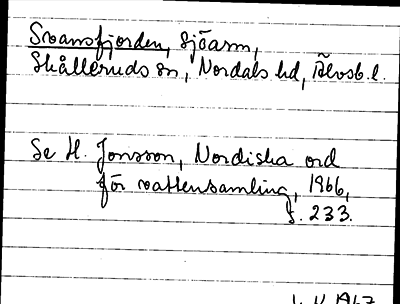 Svansfjorden, sjöarm,
Skålleruds sn, Nordals hd, Älvsb. l.
Se H. Jonsson, Nordiska ord
för vattensamling, 1966,
s. 233.